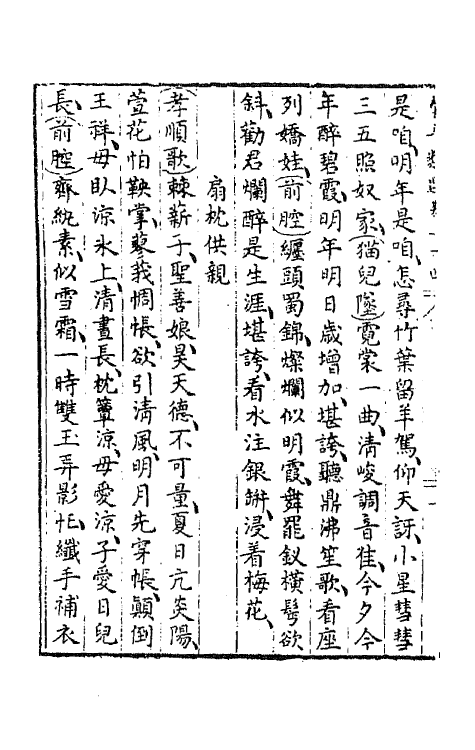 是咱、明年是咱、怎尋竹葉留羊駕、仰天訝、小星彗彗
三五照奴家、（猫兒墜）霓裳一曲、清峻調音佳、今夕今
年醉碧霞、明年明日歲增加、堪誇、聽鼎沸笙歌、看座
列嬌娃、（前腔）纏頭蜀錦、燦爛似明霞、舞罷釵橫髩欲
斜、勸君爛醉是生涯、堪誇、看水注銀缾、浸着梅花、
扇枕供親
（孝順歌）棘薪子、聖善娘、昊天德、不可量、夏日亢炎陽、
萱花怕鞅掌、蓼莪惆悵、欲引清風、明月先穿帳、顛倒
王祥、母臥涼氷上、清晝長、枕簟涼、母愛涼、子愛日兒
長、（前腔）齊紈素、似雪霜、一時雙玉弄影忙、纖手補衣